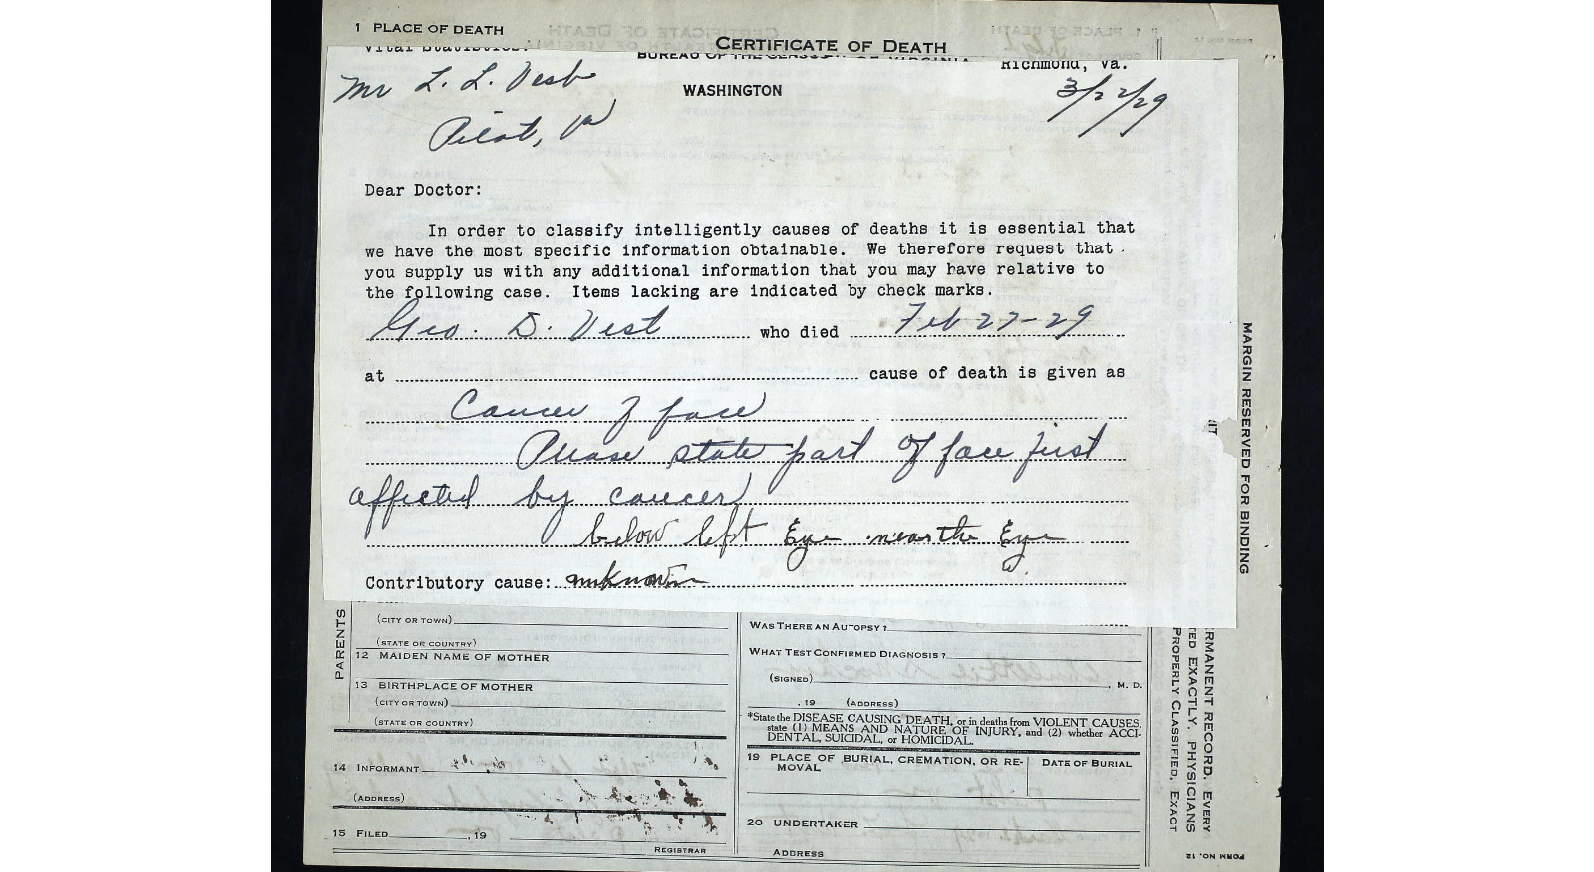 1 PLACE OF DEATH
CERTIFICATE OF DEATH
Vital Statistics.
BUREAU OF THE CENSUS
Richmond, Va.
Mr L. L. Vest
WASHINGTON
3/22/29
Pilot, Va
Dear Doctor:
In order to classify intelligently causes of deaths it is essential that
we have the most specific information obtainable. We therefore request that
you supply us with any additional information that you may have relative to
the following case. Items lacking are indicated by check marks.
Geo. D. Vest who died Feb 27-29
at cause of death is given as
Cancer of face
Please state part of face first
affected by cancer
below left Eye near the Eye
Contributory cause: unknown
MARGIN RESERVED FOR BINDING
PARENTS
(CITY OR TOWN)
(STATE OR COUNTRY)
12 MAIDEN NAME OF MOTHER
13 BIRTHPLACE OF MOTHER
(CITY OR TOWN)
(STATE OR COUNTRY)
14 INFORMANT
(ADDRESS)
15 FILED , 19
REGISTRAR
WAS THERE AN AUTOPSY?
WHAT TEST CONFIRMED DIAGNOSIS?
(SIGNED) , M. D.
, 19 (ADDRESS)
*State the DISEASE CAUSING DEATH, or in deaths from VIOLENT CAUSES,
state (1) MEANS AND NATURE OF INJURY, and (2) whether ACCI-
DENTAL, SUICIDAL, or HOMICIDAL.
19 PLACE OF BURIAL, CREMATION, OR RE-
MOVAL
DATE OF BURIAL
20 UNDERTAKER
ADDRESS
RMANENT RECORD. EVERY
TED EXACTLY. PHYSICIANS
PROPERLY CLASSIFIED. EXACT
FORM NO. 12